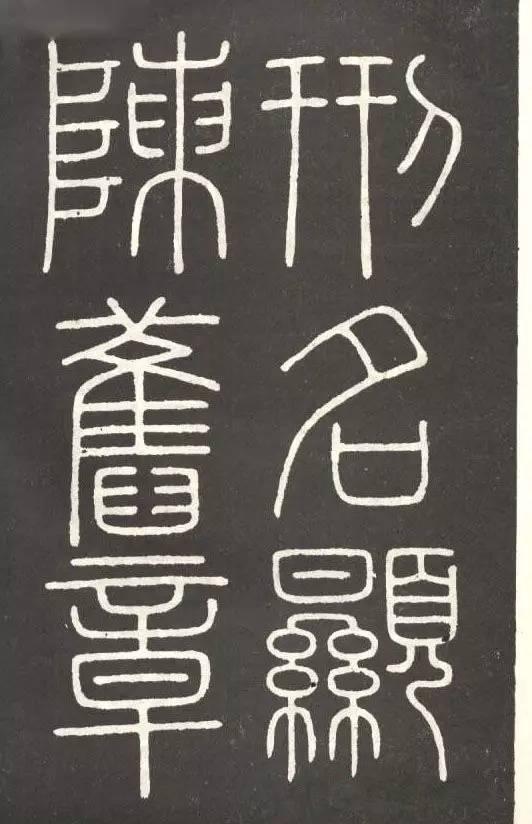 刑名顯
陳舊章